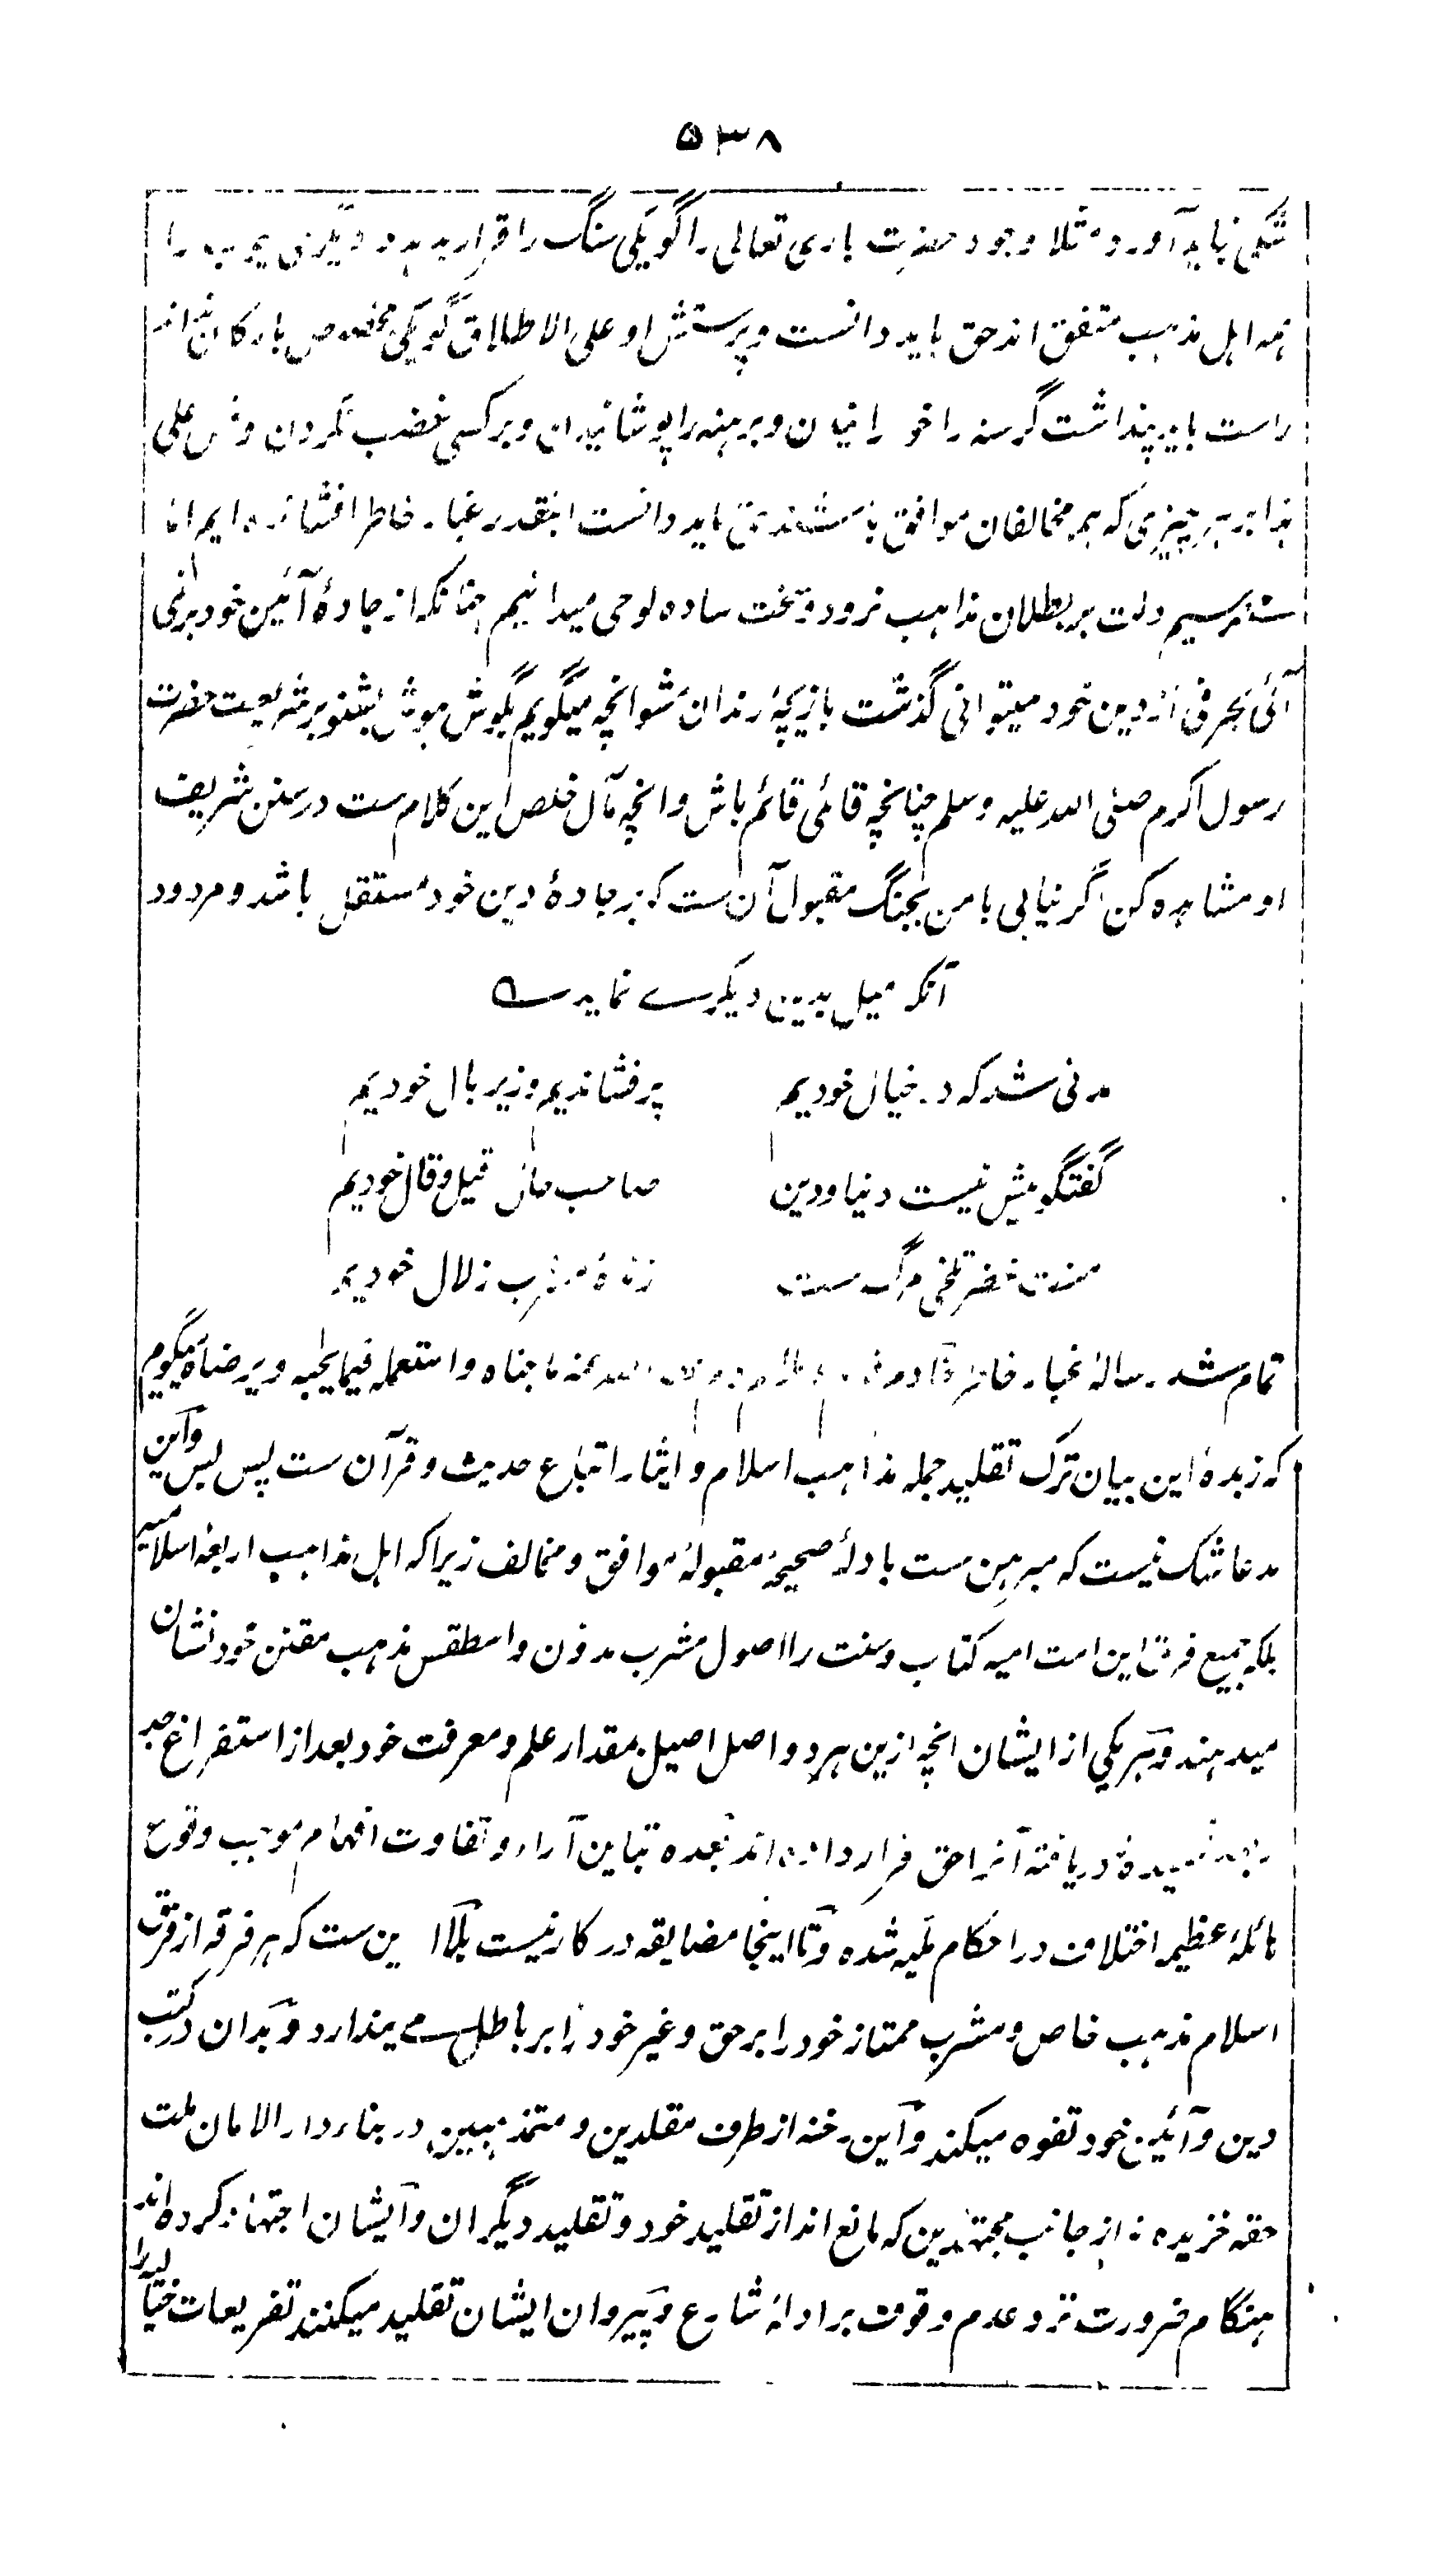 ۵۳۸
شکی نباید آورد مثلا وجود حضرت باری تعالی را گو یکی سنگ را قرار بدهد و دیگری را
همه اهل مذهب متفق اند حق باید دانست و پرستش او علی الاطلاق گو یکی مخصوص
راست باید پنداشت گرسنه را خورانیدن و برهنه را پوشانیدن و بر کسی غضب نکردن و علی
هذا هر چیزی که هم مخالفان موافق باشند حق باید دانست اینقدر غبار خاطر افشانده ایم اما
دلت بر بطلان مذاهب نرود و سخت ساده لوحی میدانیم چنانکه از جادهٔ آئین خود بر نمی
آئی بحرفی از دین خود میتوانی گذشت بازیچهٔ رندان مشو انچه میگویم بگوش هوش بشنو بر شریعت حضرت
رسول اکرم صلی الله علیه وسلم چنانچه قائمی قائم باش و انچه مآل خلص این کلام ست در سنن شریف
او مشاهده کن اگر نیابی با من بجنگ مقبول آن ست که بر جادهٔ دین خود مستقل باشد و مردود
آنکه میل بدین دیگرے نماید ے
مدتی شد که در خیال خودیم پر فشاندیم و زیر بال خودیم
گفتگو بیش نیست دنیا و دین صاحب حال قیل و قال خودیم
منت خضر تلخی مرگ ست زندهٔ مشرب زلال خودیم
تمام شد رسالهٔ غبار خاطر ما جناه واستعمله فیما یحبه و یرضاه میگویم
که زبدهٔ این بیان ترک تقلید جمله مذاهب اسلام و ایثار اتباع حدیث و قرآن ست پس بس و این
مدعا شک نیست که مبرهن ست بادلهٔ صحیحهٔ مقبولهٔ موافق و مخالف زیرا که اهل مذاهب اربعهٔ اسلامیه
بلکه جمیع فرق این امت امیه کتاب و سنت را اصول مشرب مدون و اسطقس مذهب مقنن خود نشان
میدهند و هر یکی از ایشان انچه ازین هر دو اصل اصیل بمقدار علم و معرفت خود بعد از استفراغ جد
دریافته آنرا حق قرار داده اند بعده تباین آراء و تفاوت افهام موجب وقوع
هائلهٔ عظیمه اختلاف در احکام ملیه شده و تا اینجا مضایقه در کار نیست بلا این ست که هر فرقه از فرق
اسلام مذهب خاص و مشرب ممتاز خود را بر حق و غیر خود را بر باطل مے پندارد و بدان در کتب
دین و آئین خود تفوه میکند و این رخنه از طرف مقلدین و متمذهبین در بناء دار الامان ملت
حقه خزیده نه از جانب مجتهدین که مانع اند از تقلید خود و تقلید دیگران و ایشان اجتهاد کرده اند
هنگام ضرورت نزد عدم وقوف بر ادلهٔ شارع و پیروان ایشان تقلید میکنند تفریعات خیالیه را